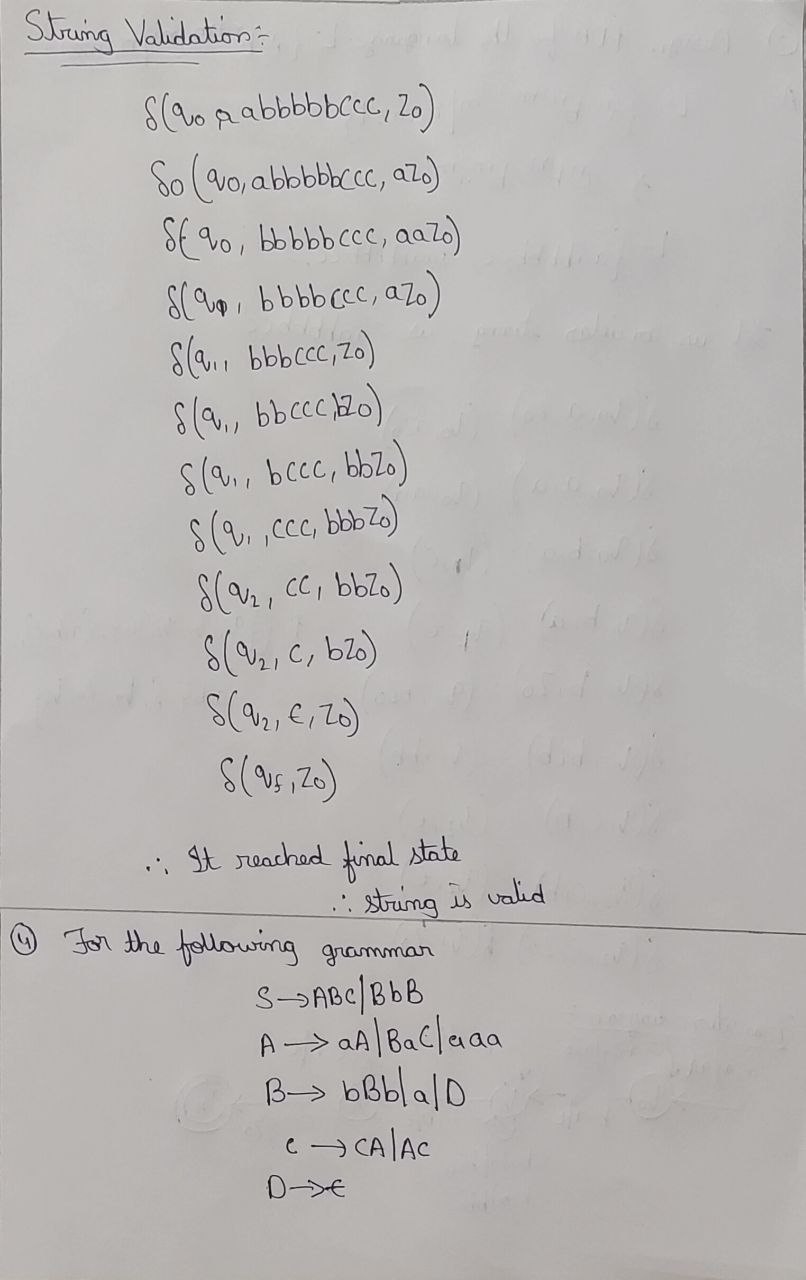 String Validation:-
δ(q0 aabbbbbccc, Z0)
δ0(q0, abbbbbccc, aZ0)
δ(q0, bbbbbccc, aaZ0)
δ(q1, bbbbccc, aZ0)
δ(q1, bbbccc, Z0)
δ(q1, bbccc, bZ0)
δ(q1, bccc, bbZ0)
δ(q1, ccc, bbbZ0)
δ(q2, cc, bbZ0)
δ(q2, c, bZ0)
δ(q2, ϵ, Z0)
δ(qf, Z0)
∴ It reached final state
∴ string is valid
④ For the following grammar
S→ABC|BbB
A→aA|BaC|aaa
B→bBb|a|D
C→CA|AC
D→ϵ